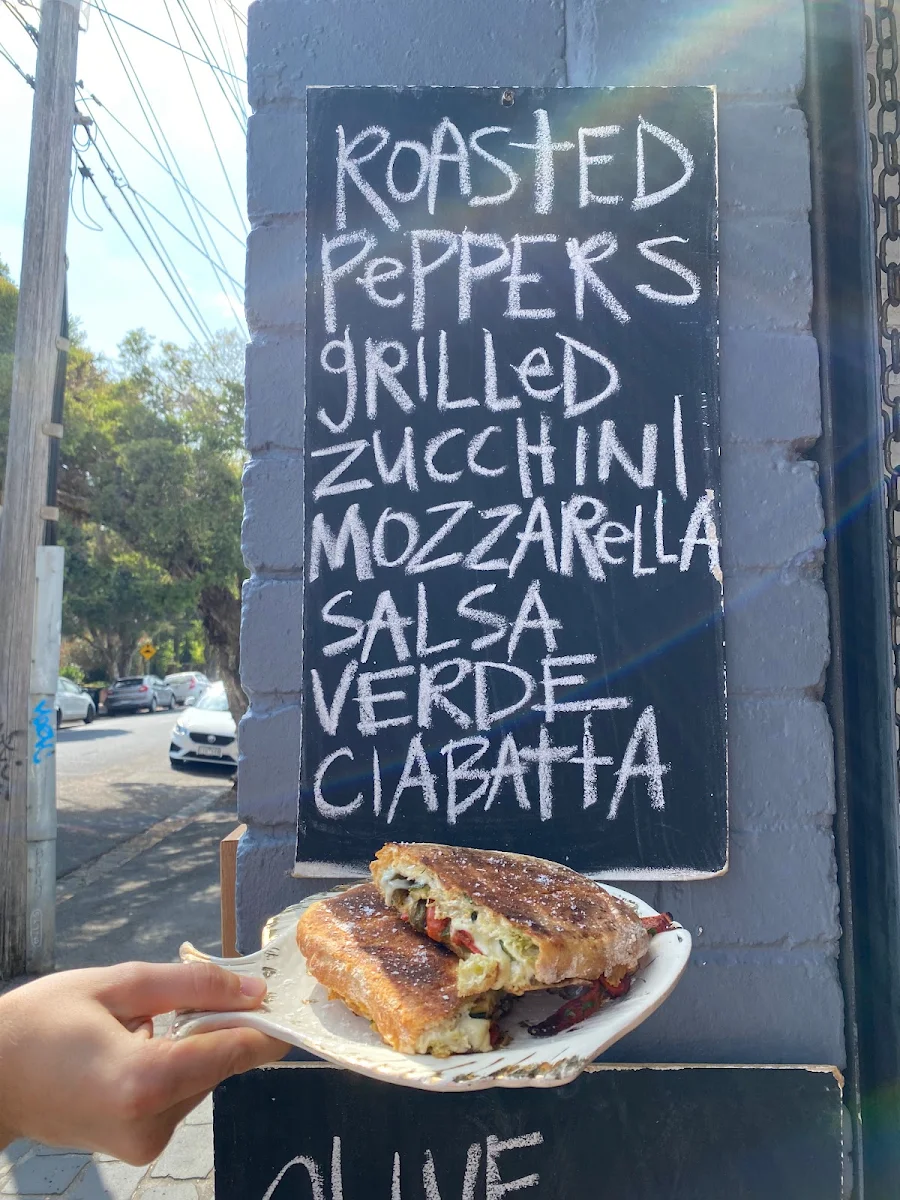 ROASTED
PePPERS
gRILLeD
ZUCCHINI
MOZZARellA
SALSA
VERDE
CIABAttA
OLIVE